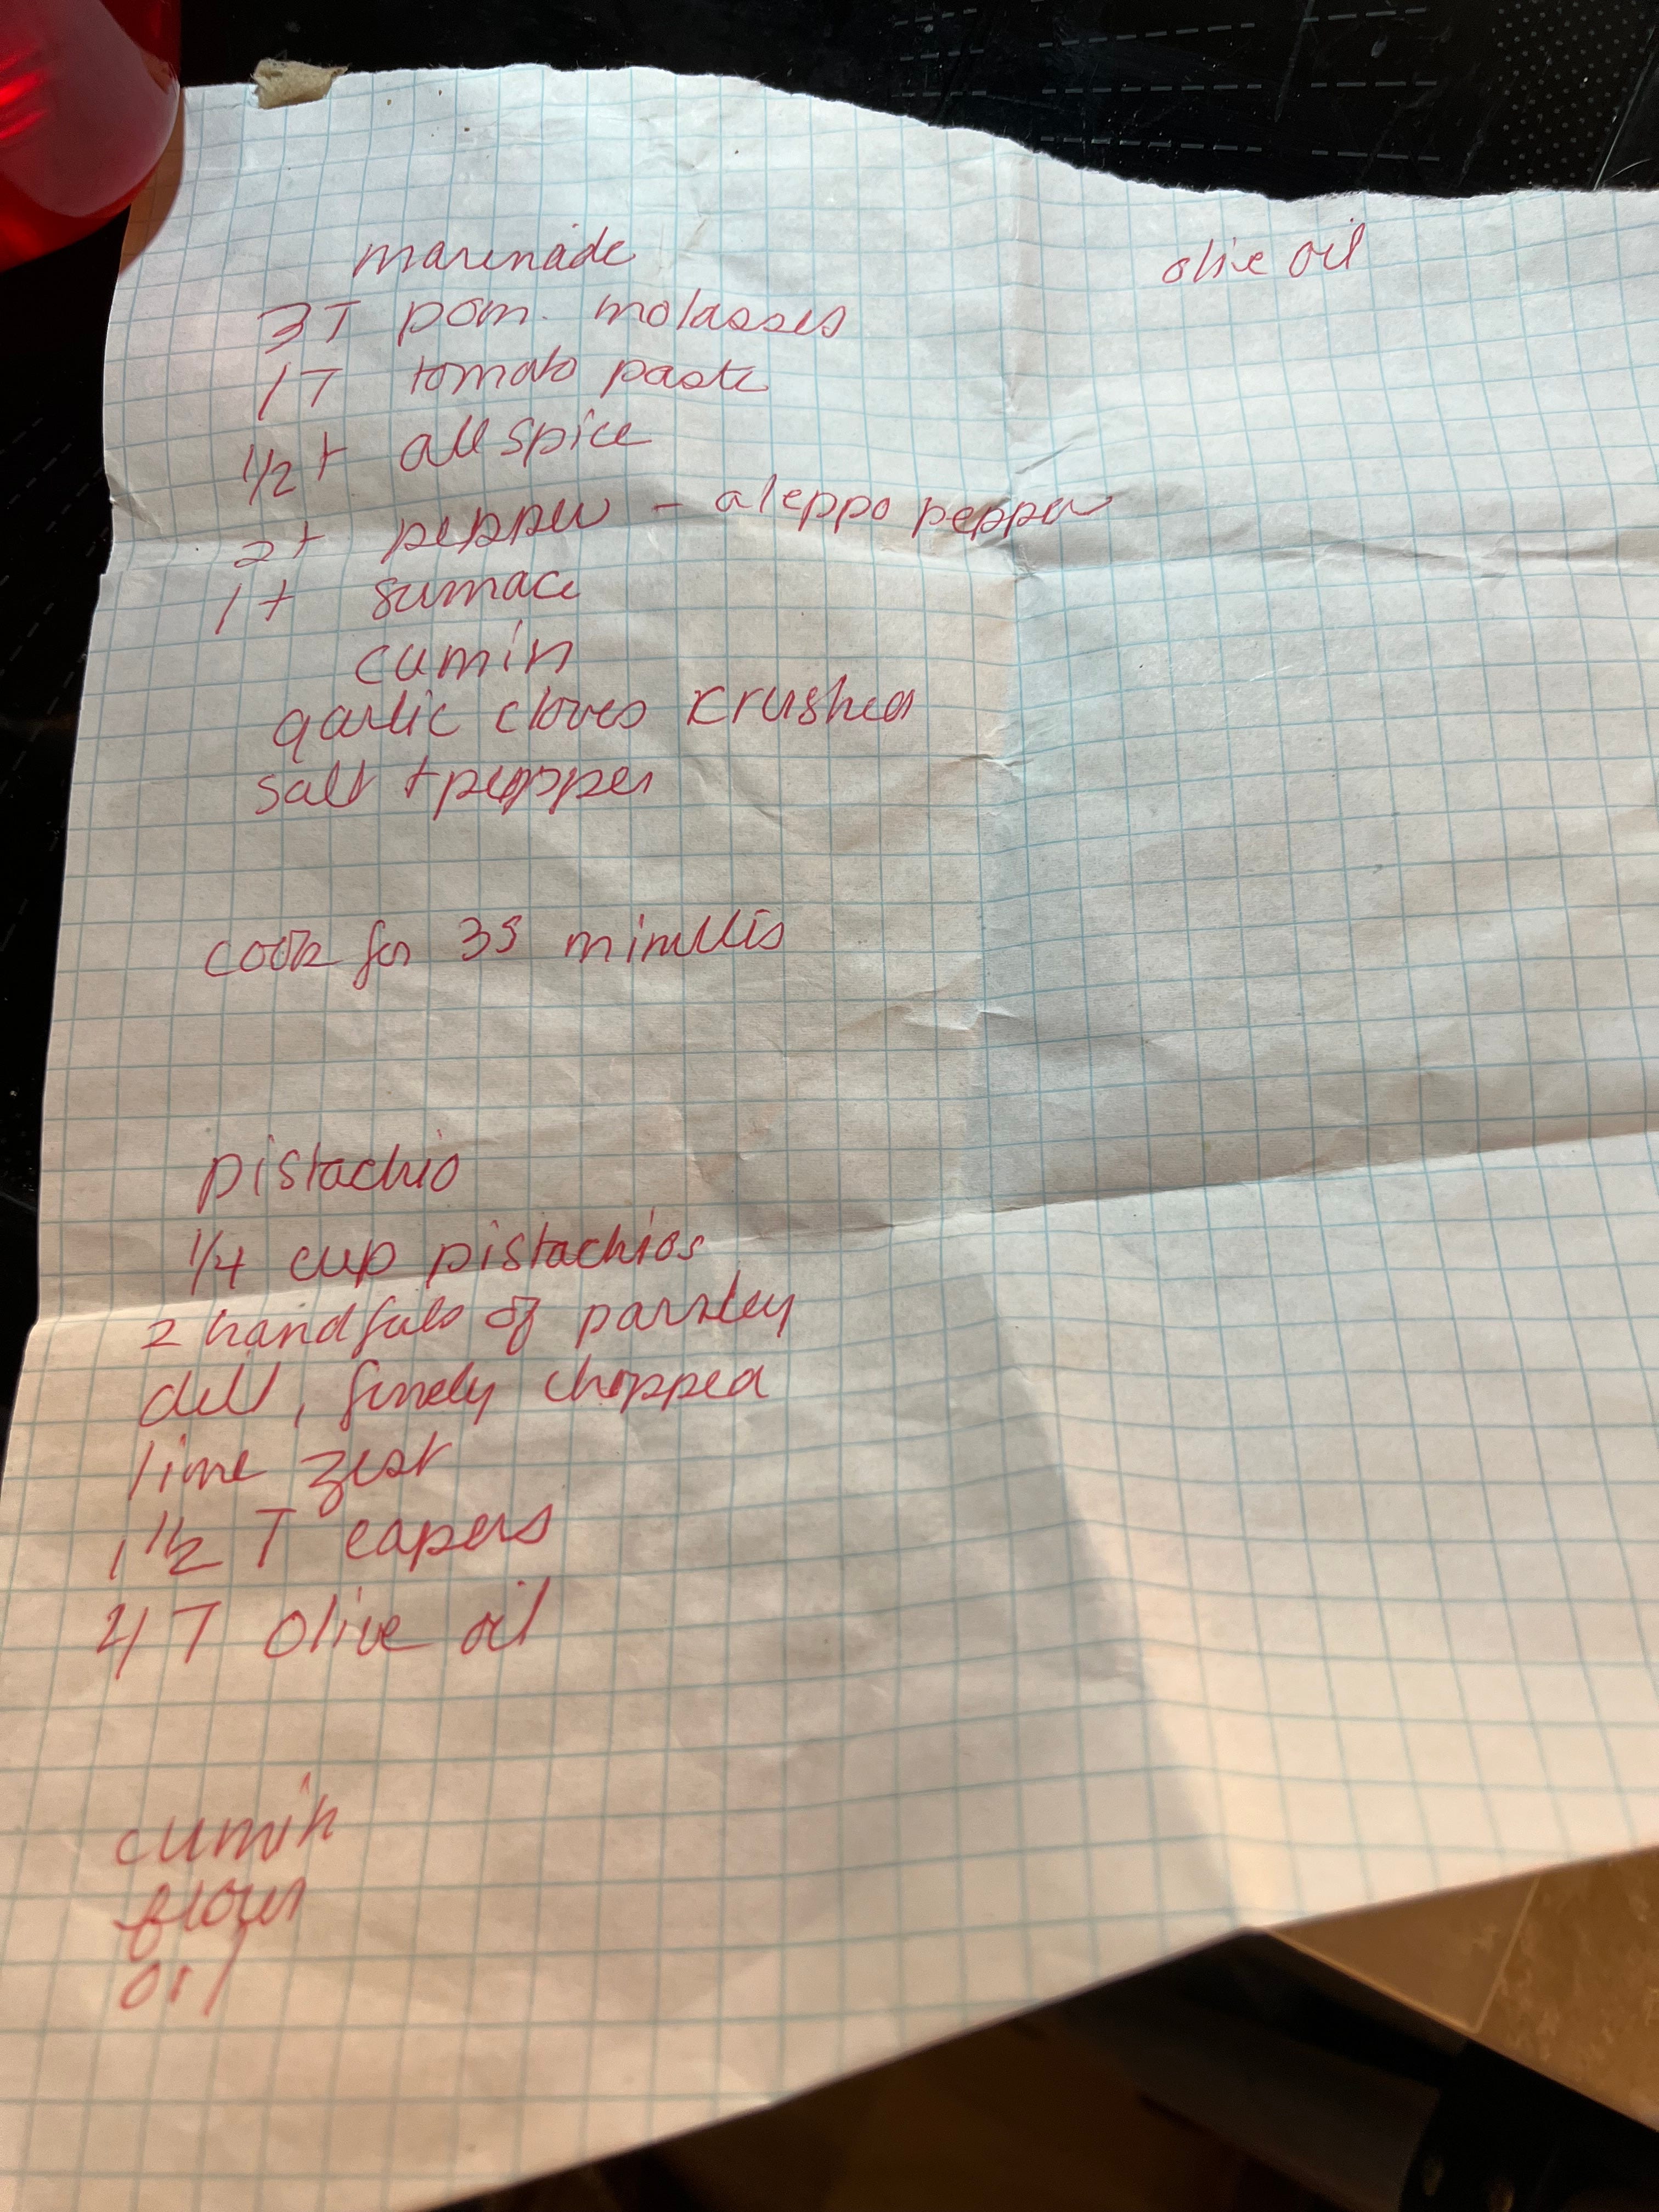 marinade
olive oil
3T pom. molasses
1T tomato paste
1/2t allspice
2t pepper - aleppo pepper
1t sumace
cumin
garlic cloves crushed
salt + pepper
cook for 35 minutes
pistachio
1/4 cup pistachios
2 handfuls of parsley
dill, finely chopped
lime zest
1 1/2 T capers
4 T olive oil
cumin
flour
oil